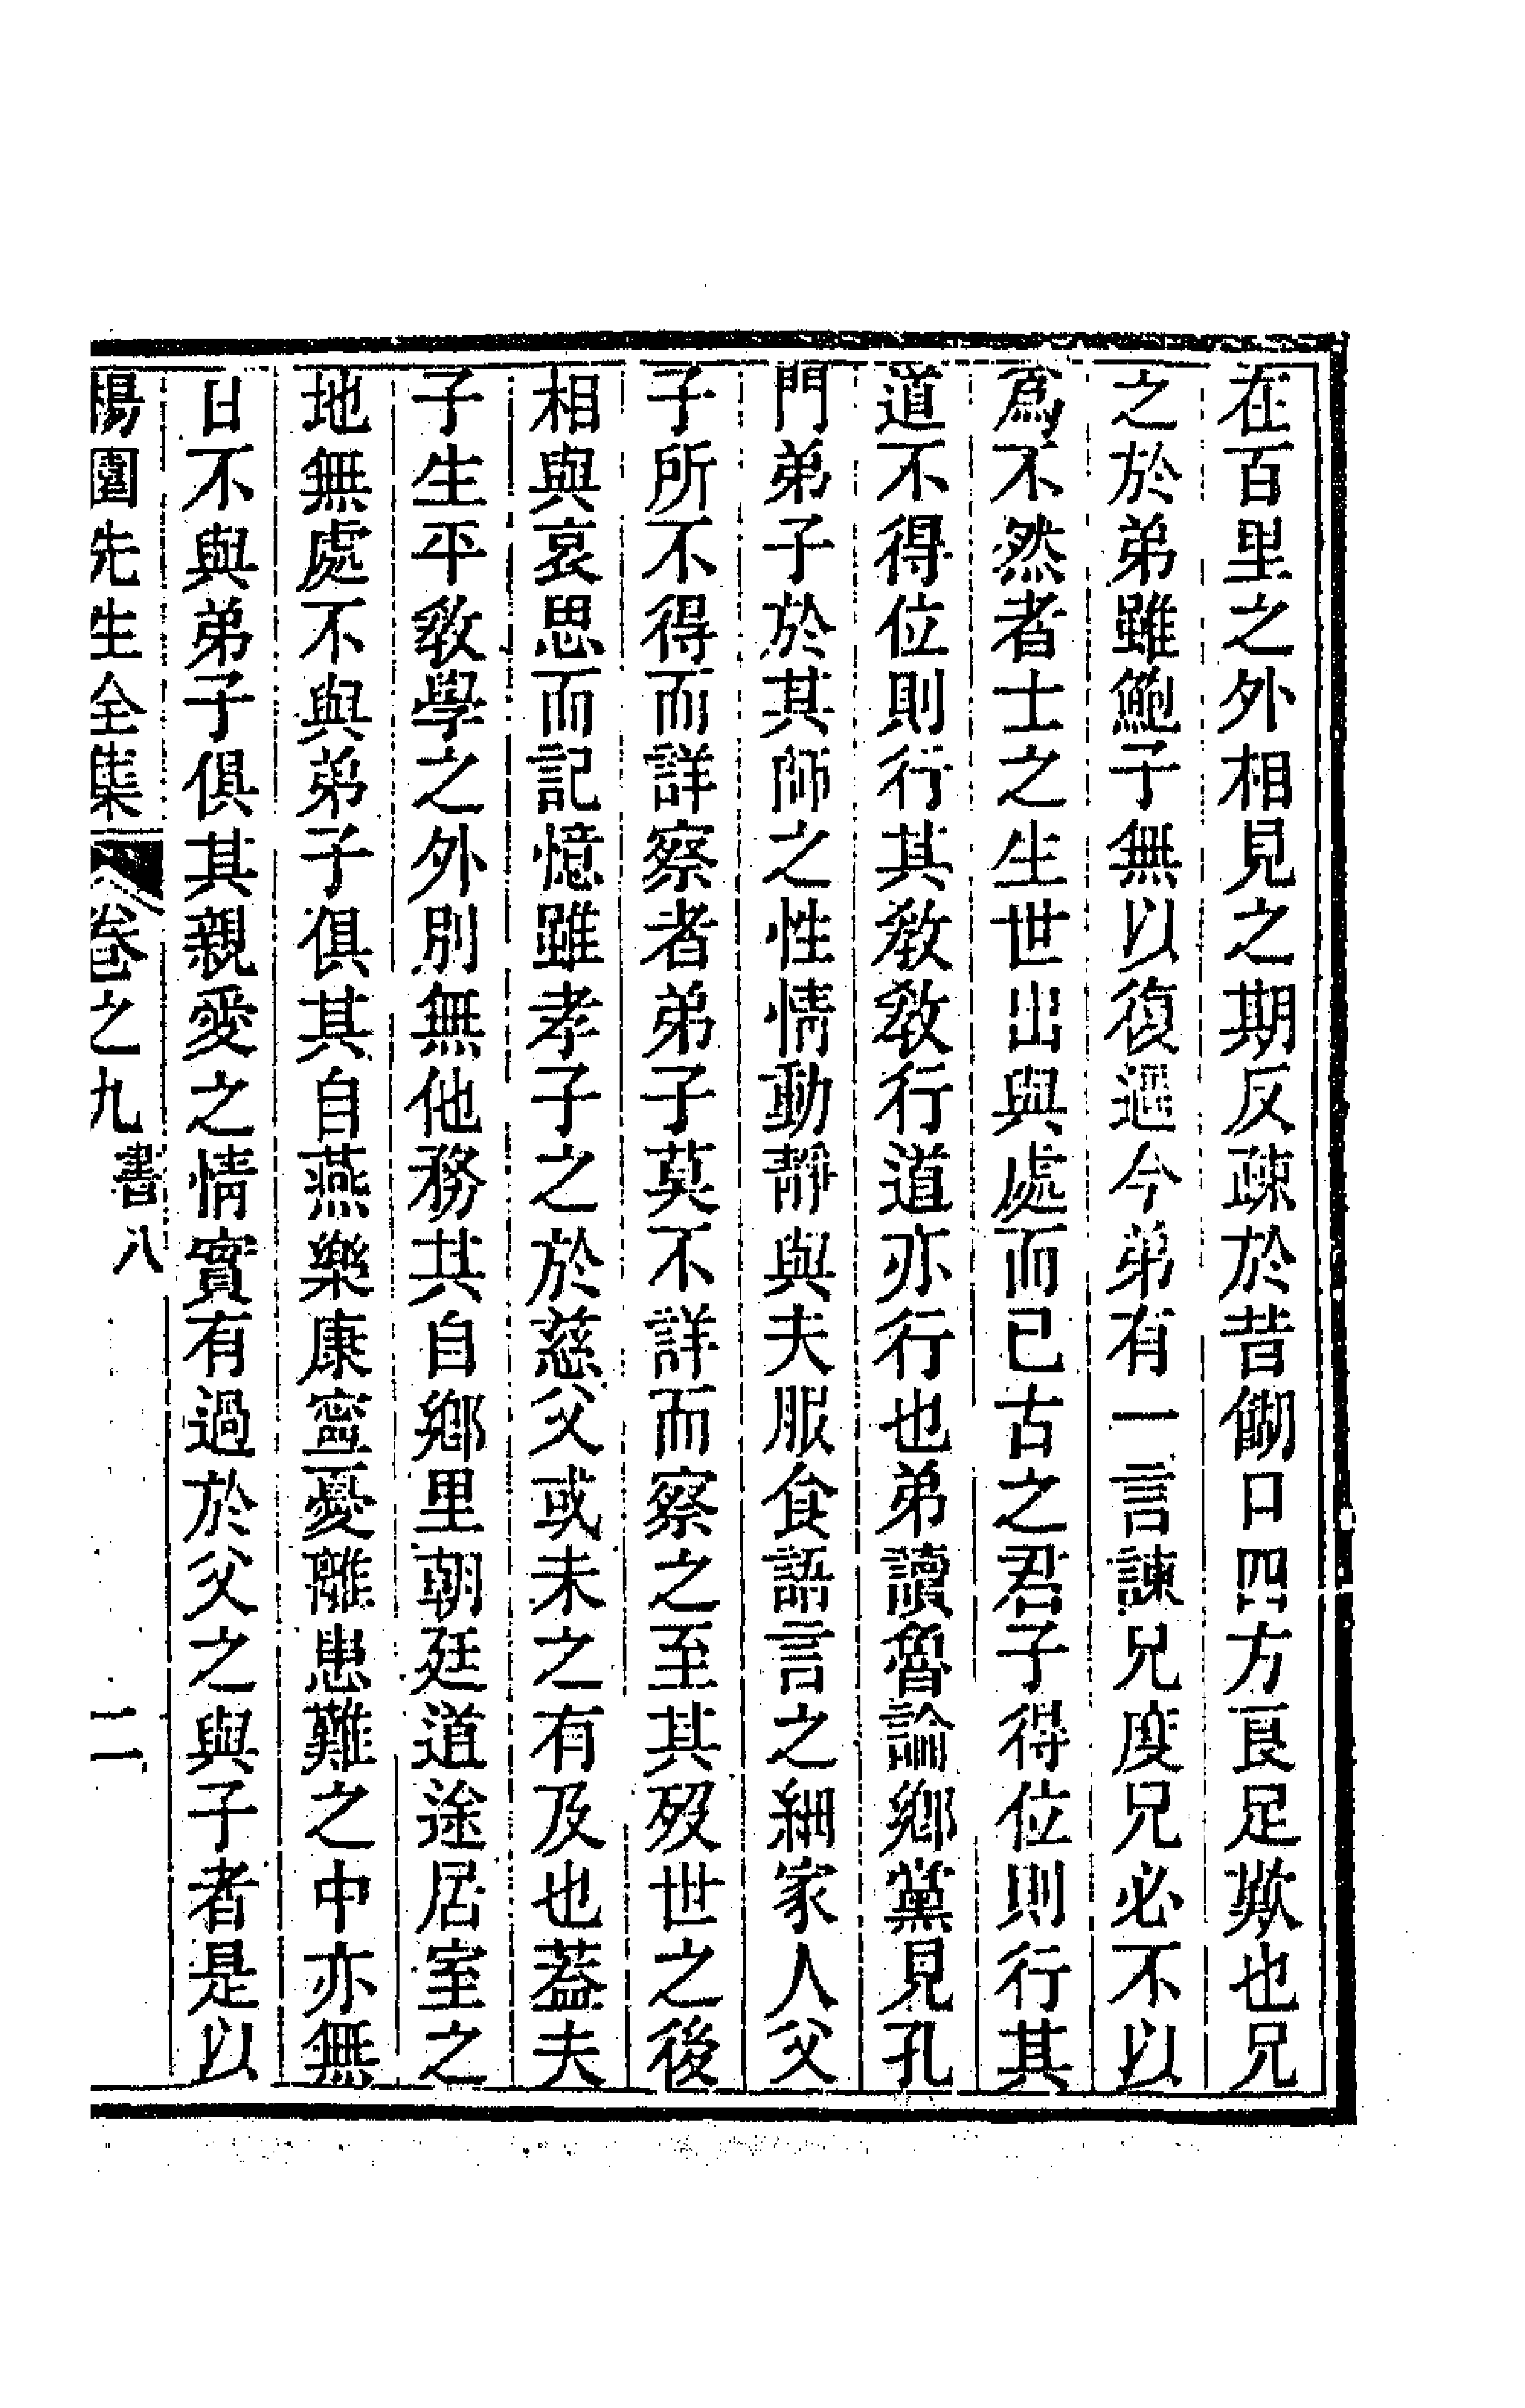 在百里之外相見之期反疎於昔餬口四方良足歎也兄
之於弟雖鮑子無以復過今弟有一言諫兄度兄必不以
爲不然者士之生世出與處而已古之君子得位則行其
道不得位則行其敎敎行道亦行也弟讀魯論鄉黨見孔
門弟子於其師之性情動靜與夫服食語言之細家人父
子所不得而詳察者弟子莫不詳而察之至其歿世之後
相與哀思而記憶雖孝子之於慈父或未之有及也蓋夫
子生平敎學之外別無他務其自鄉里朝廷道途居室之
地無處不與弟子俱其自燕樂康寧憂離患難之中亦無
日不與弟子俱其親愛之情實有過於父之與子者是以
楊園先生全集 卷之九 書八 二